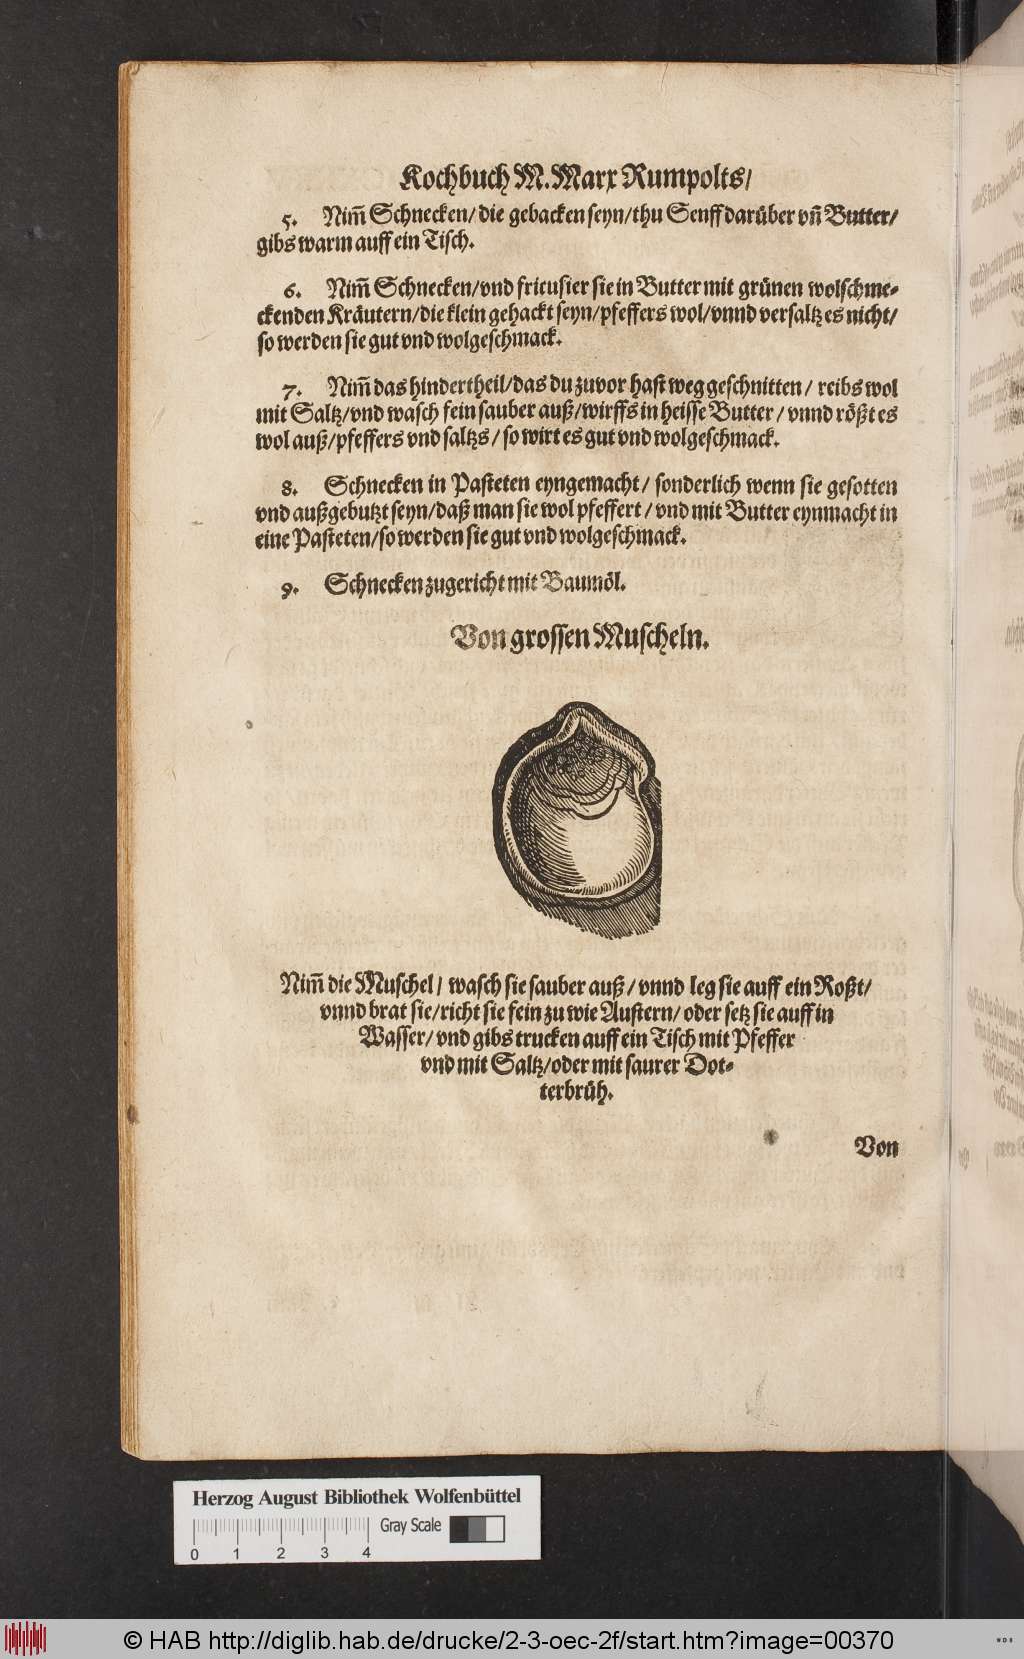 Kochbuch M. Marx Rumpolts/
5. Nim̃ Schnecken/ die gebacken seyn/ thu Senff darüber vñ Butter/
gibs warm auff ein Tisch.
6. Nim̃ Schnecken/ vnd fricusier sie in Butter mit grünen wolschme-
ckenden Kräutern/ die klein gehackt seyn/ pfeffers wol/ vnnd versaltz es nicht/
so werden sie gut vnd wolgeschmack.
7. Nim̃ das hindertheil/ das du zuvor hast weg geschnitten/ reibs wol
mit Saltz/ vnd wasch fein sauber auß/ wirffs in heisse Butter/ vnnd rößt es
wol auß/ pfeffers vnd saltzs/ so wirt es gut vnd wolgeschmack.
8. Schnecken in Pasteten eyngemacht/ sonderlich wenn sie gesotten
vnd außgebutzt seyn/ daß man sie wol pfeffert/ vnd mit Butter eynmacht in
eine Pasteten/ so werden sie gut vnd wolgeschmack.
9. Schnecken zugericht mit Baumöl.
Von grossen Muscheln.
Nim̃ die Muschel/ wasch sie sauber auß/ vnnd leg sie auff ein Roßt/
vnnd brat sie/ richt sie fein zu wie Austern/ oder setz sie auff in
Wasser/ vnd gibs trucken auff ein Tisch mit Pfeffer
vnd mit Saltz/ oder mit saurer Dot-
terbrüh.
Von
Herzog August Bibliothek Wolfenbüttel
Gray Scale
0 1 2 3 4
© HAB http://diglib.hab.de/drucke/2-3-oec-2f/start.htm?image=00370